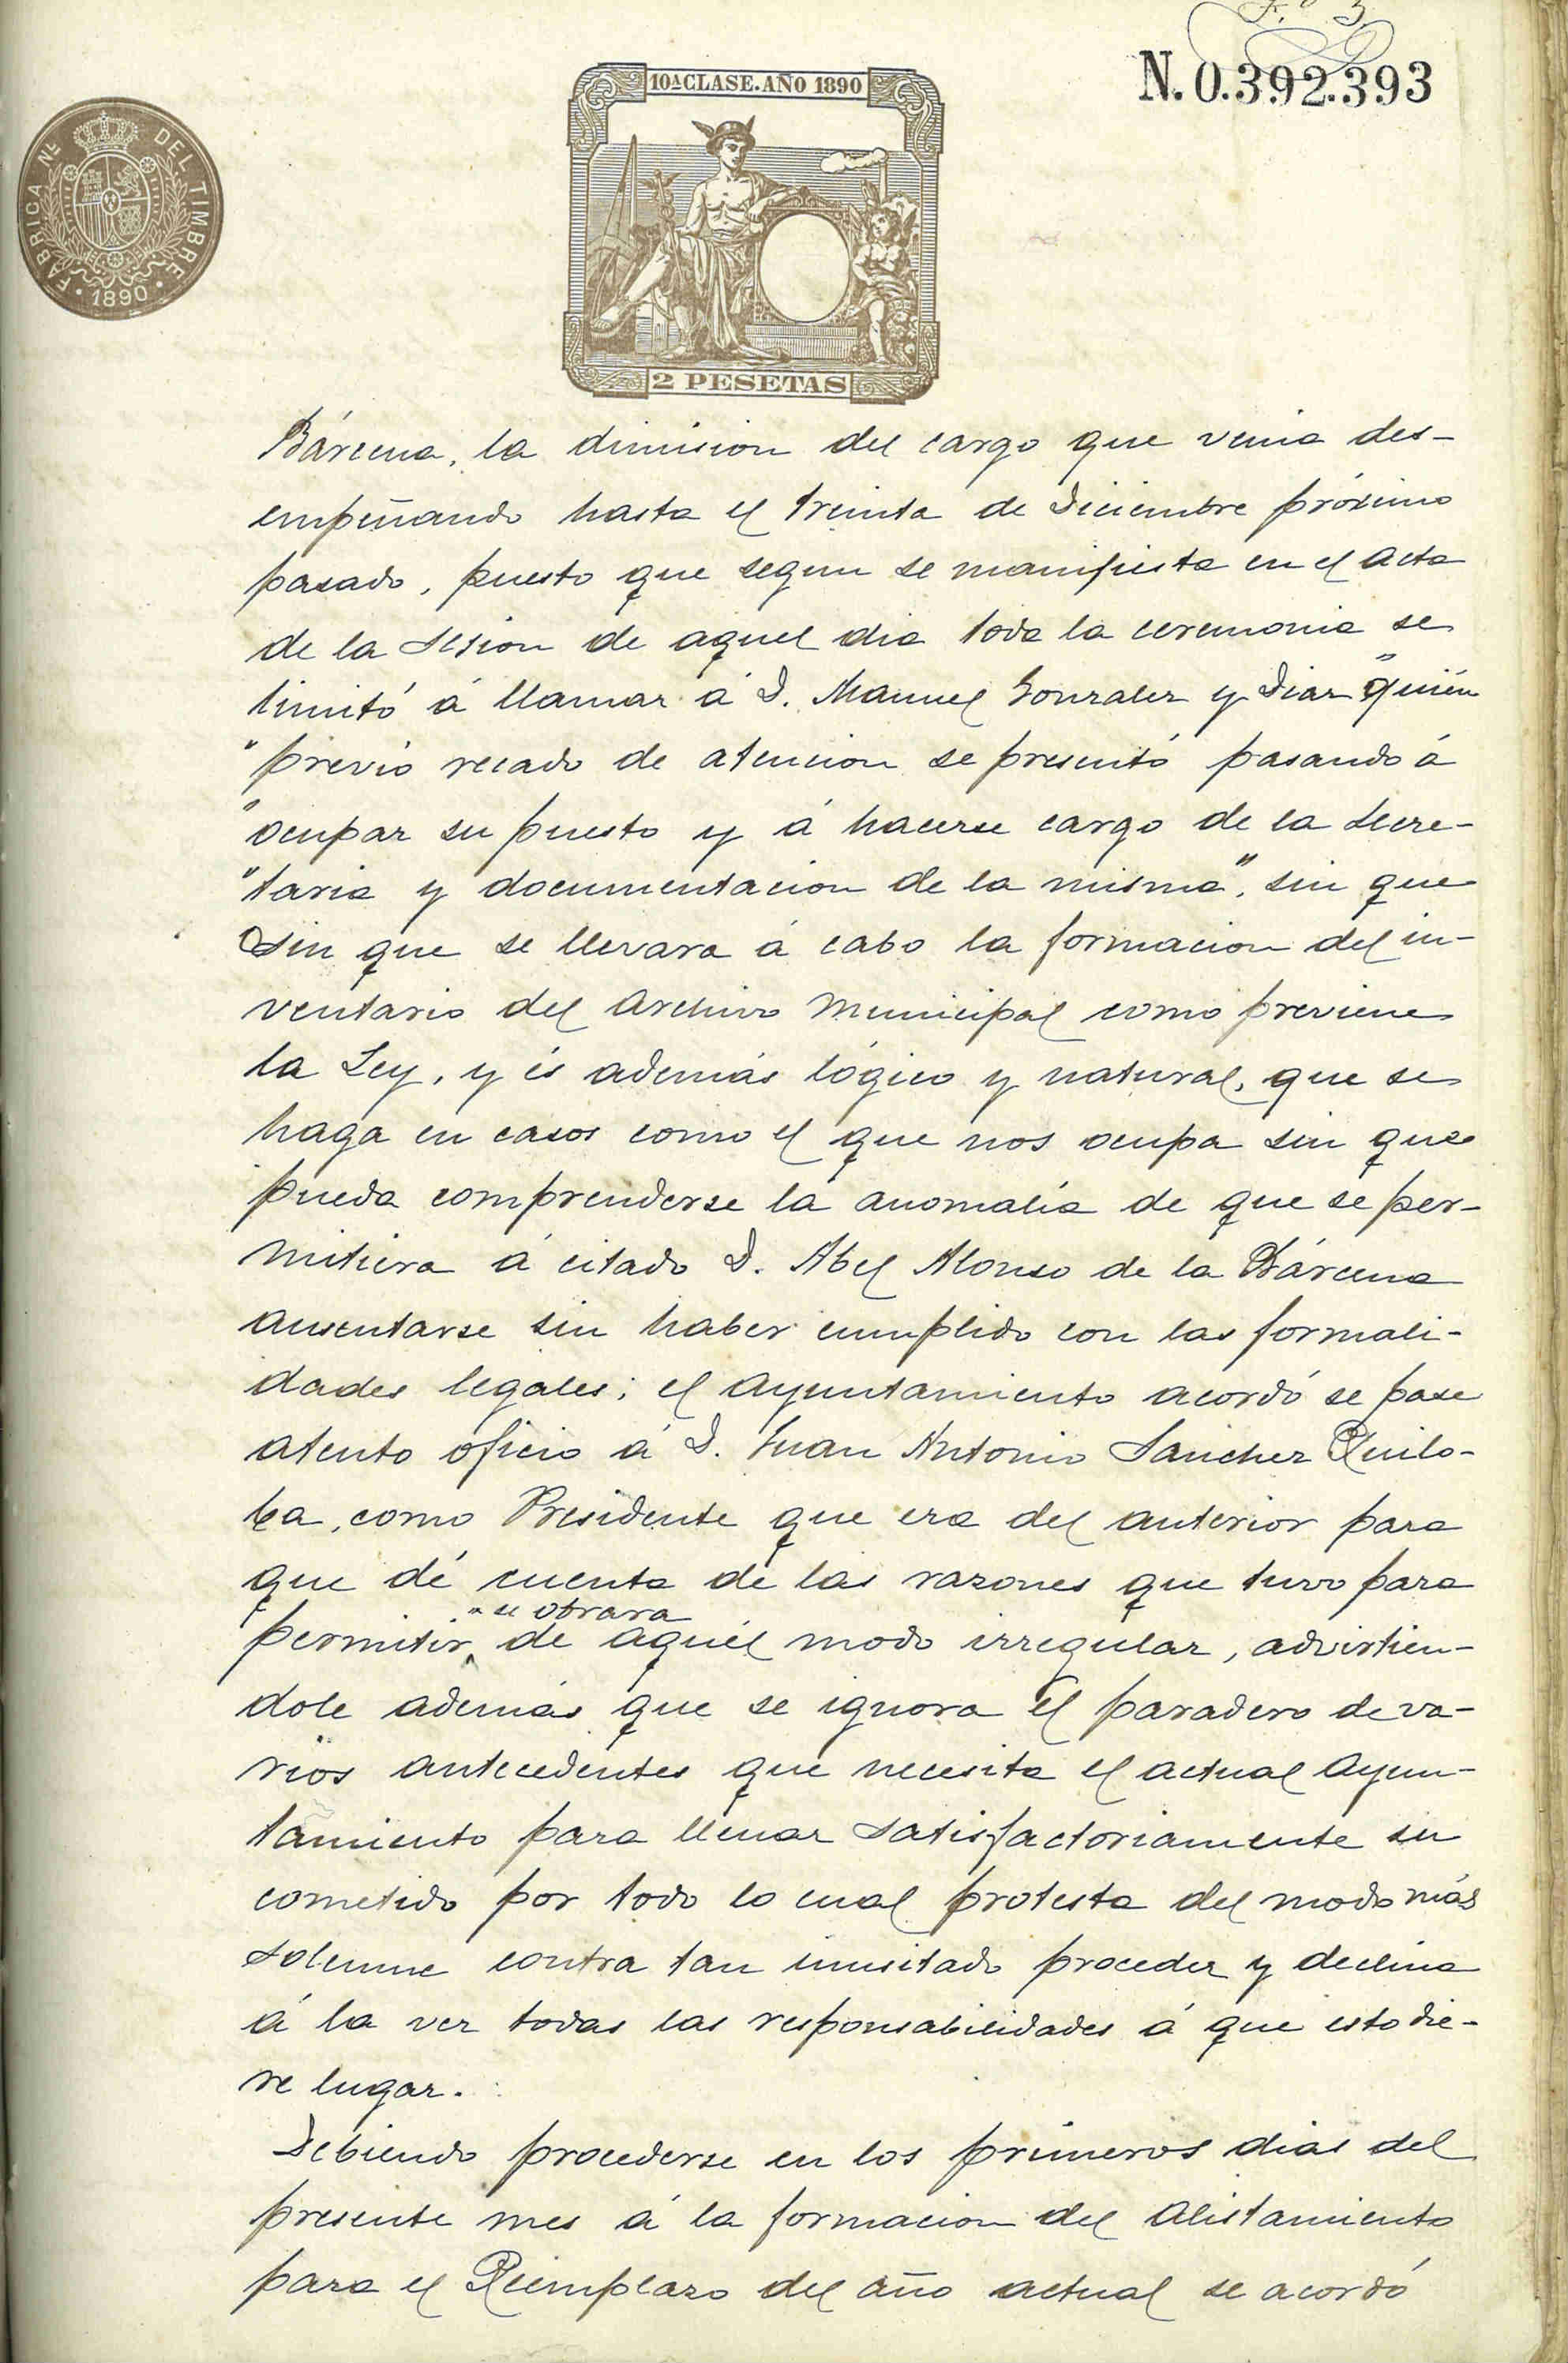 F.º 3
N. 0.392.393
10ª CLASE. AÑO 1890
FABRICA Nᴸ DEL TIMBRE
· 1890 ·
2 PESETAS
Bárcena, la dimision del cargo que venia des-
empeñando hasta el treinta de Diciembre próximo
pasado, puesto que segun se manifiesta en el acta
de la sesion de aquel dia toda la ceremonia se
limitó á llamar á D. Manuel Gonzalez y Diaz "quién
"previo recado de atencion se presentó pasando á
"ocupar su puesto y á hacerse cargo de la Secre-
"taria y documentacion de la misma", sin que
sin que se llevara á cabo la formacion del in-
ventario del Archivo Municipal como previene
la Ley, y és además lógico y natural, que se
haga en casos como el que nos ocupa sin que
pueda comprenderse la anomalía de que se per-
mitiera á citado D. Abel Alonso de la Bárcena
ausentarse sin haber cumplido con las formali-
dades legales; el Ayuntamiento acordó se pase
atento oficio á D. Juan Antonio Sanchez Quilo-
ba, como Presidente que era del anterior para
que dé cuenta de las razones que tuvo para
se obrara
permitir de aquél modo irregular, advirtien-
dole además que se ignora el paradero de va-
rios antecedentes que necesita el actual Ayun-
tamiento para llenar satisfactoriamente su
cometido por todo lo cual protesta del modo más
solemne contra tan inusitado proceder y declina
á la vez todas las responsabilidades á que esto die-
re lugar.
Debiendo procederse en los primeros dias del
presente mes á la formacion del Alistamiento
para el Reemplazo del año actual se acordó